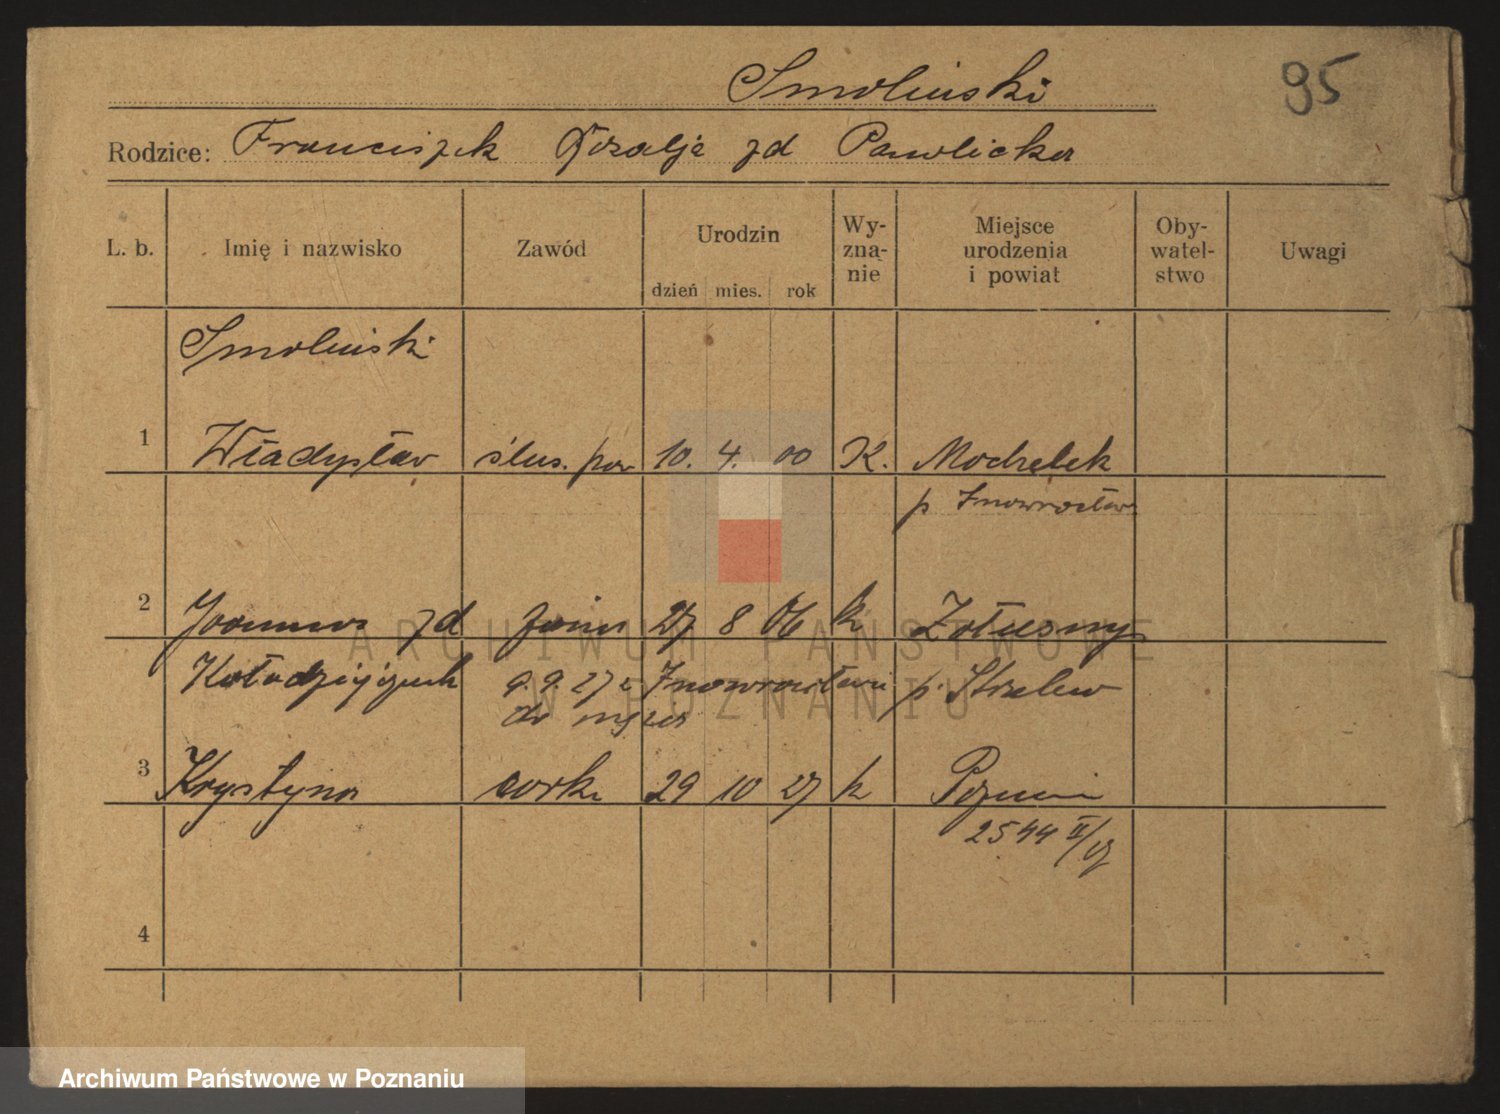 Smoliński
95
Rodzice: Franciszek Rozalja zd Pawlicka
L. b.
Imię i nazwisko
Zawód
Urodzin
dzień mies. rok
Wy-
zna-
nie
Miejsce
urodzenia
i powiat
Oby-
watel-
stwo
Uwagi
Smoliński
1 Władysław ślus. por 10. 4. 00 K. Modrzelek
p Inowrocław
2 Joanna zd żona 27 8 06 k
Kołodziejczak 9.9.27 z Inowrocławia p. Strzelno
3 Krystyna córka 29 10 27 k Poznań
2544 II/27
4
ARCHIWUM PAŃSTWOWE
W POZNANIU
Archiwum Państwowe w Poznaniu